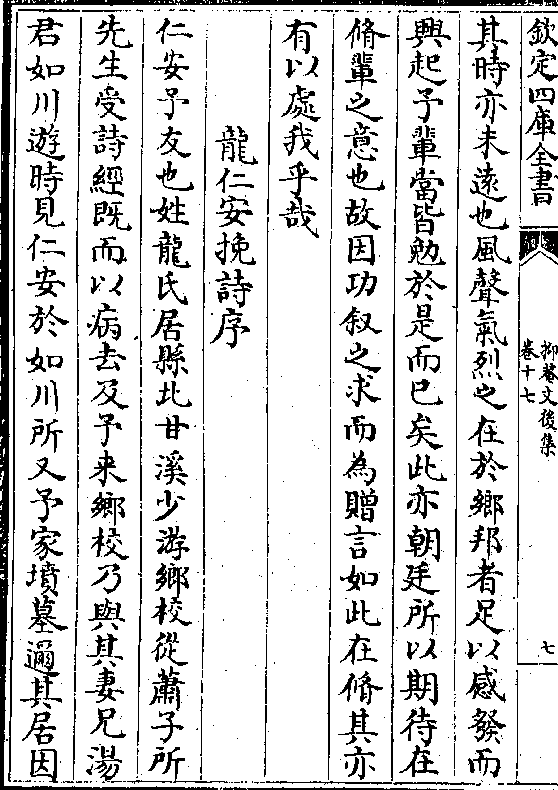 欽定四庫全書
抑菴文後集
卷十七
七
其時亦未遠也風聲氣烈之在於鄉邦者足以感發而
興起予輩當皆勉於是而已矣此亦朝廷所以期待在
脩輩之意也故因功叙之求而為贈言如此在脩其亦
有以處我乎哉
龍仁安挽詩序
仁安予友也姓龍氏居縣北甘溪少游鄉校從蕭子所
先生受詩經既而以病去及予来鄉校乃與其妻兄湯
君如川遊時見仁安於如川所又予家墳墓邇其居因